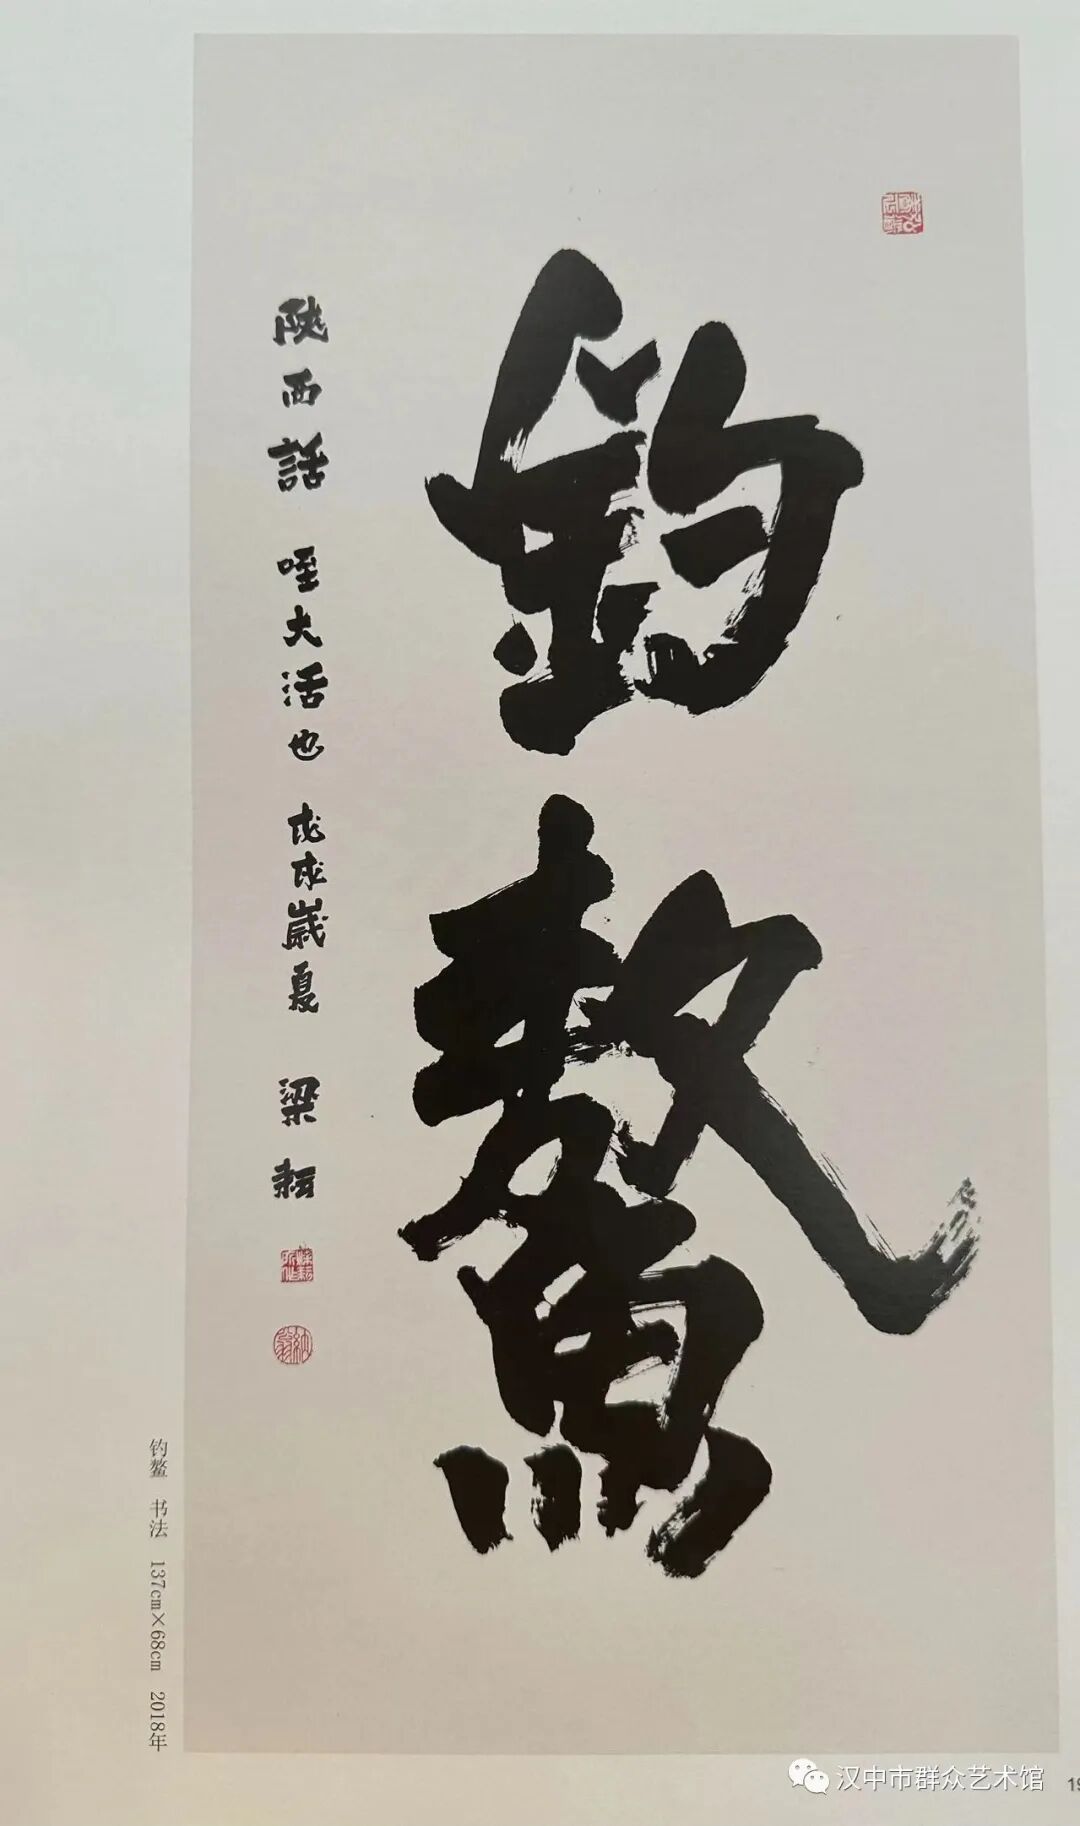 釣鰲
陝西話 咥大活也 戊戌歲夏 梁耘
钓鳌 书法 137cm×68cm 2018年
汉中市群众艺术馆